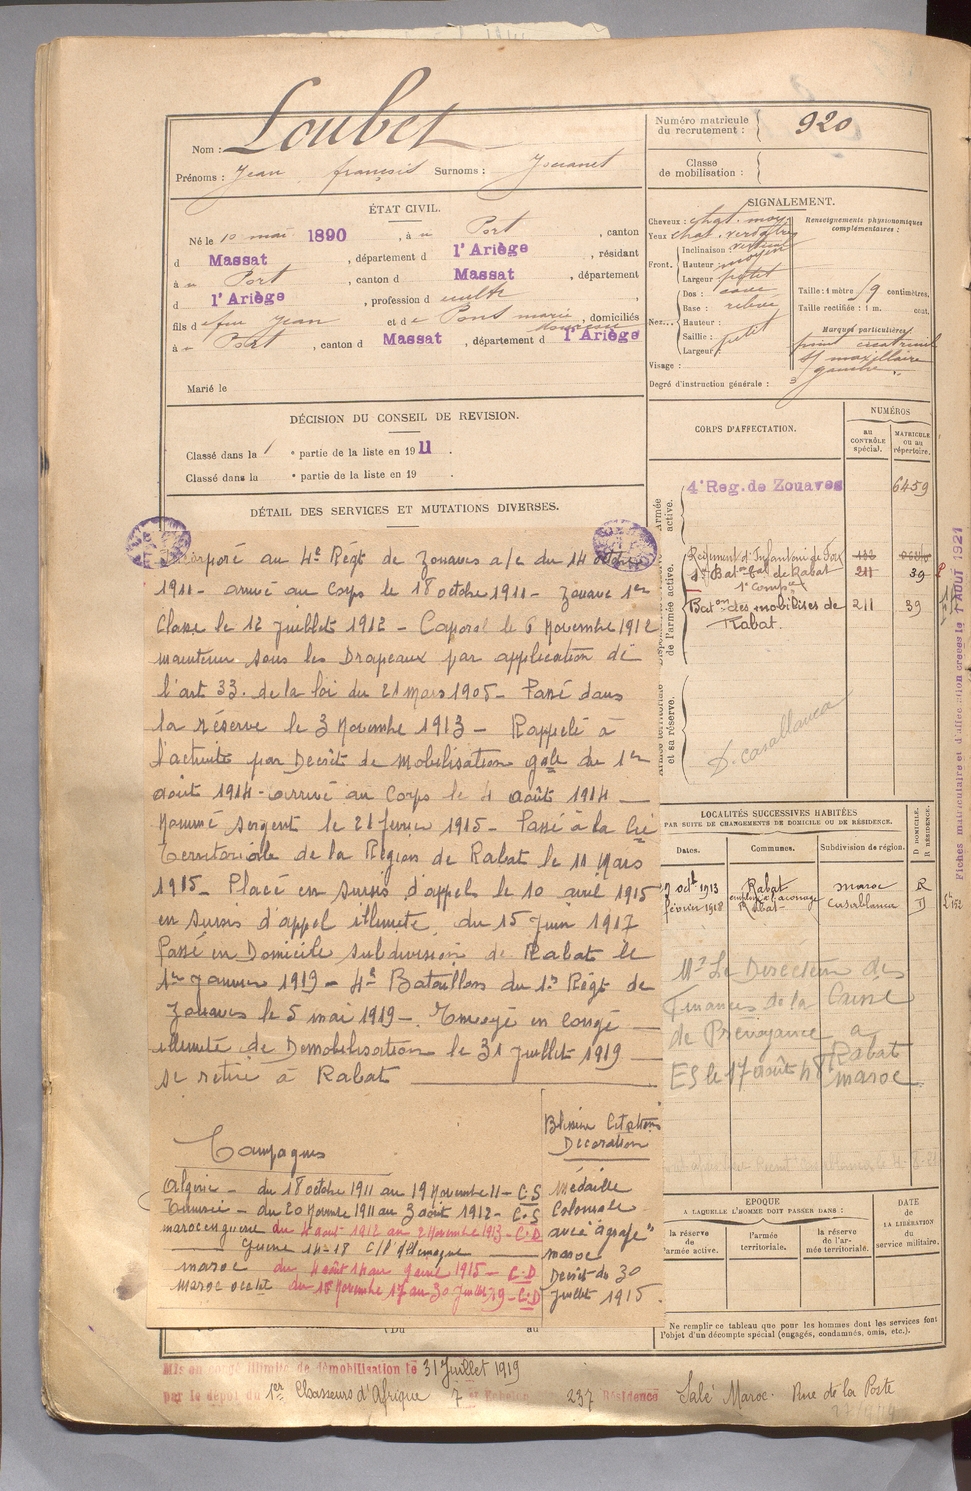 Nom : Loubet
Prénoms : Jean françois Surnoms :
Numéro matricule du recrutement : 920
Classe de mobilisation :
ÉTAT CIVIL.
Né le 10 mai 1890, à Port, canton
d Massat, département d l'Ariège, résidant
à Port, canton d Massat, département
d l'Ariège, profession d culte
fils d feu Jean et d Pont marie, domiciliés
à Port, canton d Massat, département d l'Ariège
Marié le
SIGNALEMENT.
Cheveux : chat. moy.
Yeux chat. verdâtre
Front. Inclinaison : vertical
Hauteur : moyen
Largeur : petit
Nez. Dos : cave
Base : relevé
Hauteur :
Saillie : petit
Largeur :
Visage :
Degré d'instruction générale : 3
Renseignements physionomiques complémentaires :
Taille : 1 mètre centimètres.
Taille rectifiée : 1 m. cent.
Marques particulières :
point cicatriciel
s/ maxillaire
gauche
DÉCISION DU CONSEIL DE REVISION.
Classé dans la 1e partie de la liste en 1911.
Classé dans la e partie de la liste en 19 .
CORPS D'AFFECTATION.
NUMÉROS
au CONTRÔLE spécial.
MATRICULE ou au répertoire.
Armée active.
4e Reg. de Zouaves 6459
Régiment d'Infanterie de Foix
1er Baton tal de Rabat 211 39
1e Compie
Baton des mobilisés de Rabat. 211 39
de l'armée active.
Armée territoriale et sa réserve.
D. Casablanca
DÉTAIL DES SERVICES ET MUTATIONS DIVERSES.
Incorporé au 4e Régt de Zouaves a/c du 14 octobre
1911 - arrivé au Corps le 18 octobre 1911 - Zouave 1ere
Classe le 12 Juillet 1912 - Caporal le 6 Novembre 1912
maintenu sous les Drapeaux par application de
l'art 33. de la loi du 21 mars 1905 - Passé dans
la réserve le 3 Novembre 1913 - Rappelé à
l'activité par Décrêt de mobilisation gale du 1er
août 1914 - arrivé au Corps le 4 août 1914
Nommé sergent le 21 février 1915 - Passé à la Cie
territoriale de la Région de Rabat le 11 Mars
1915 - Placé en sursis d'appel le 10 avril 1915
en sursis d'appel illimité du 15 Juin 1917
Passé en Domicile subdivision de Rabat le
1er Janvier 1919 - 4e Bataillon du 1er Régt de
Zouaves le 5 mai 1919 - Envoyé en congé
illimité de Démobilisation le 31 Juillet 1919
se retire à Rabat
Campagnes
Algérie - du 18 octobre 1911 au 19 Novembre 11 - C.S
Tunisie - du 20 Novembre 1911 au 3 août 1912 - C.S
maroc en guerre du 4 août 1912 au 2 Novembre 1913 - C.D
Guerre 14-18 C/l'Allemagne
maroc du 4 août 14 au 9 avril 1915 - C.D
Maroc occtal du 18 Novembre 17 au 30 Juillet 19 - C.D
Blessure Citations Décoration
Médaille
Coloniale
avec "agrafe"
maroc
Décrêt du 30
Juillet 1915.
LOCALITÉS SUCCESSIVES HABITÉES
PAR SUITE DE CHANGEMENTS DE DOMICILE OU DE RÉSIDENCE.
Dates. Communes. Subdivision de région. D DOMICILE. R RÉSIDENCE.
oct 1913 Rabat Maroc R
février 1918 Rabat Casablanca D
Mr Le Directeur des
Finances de la Caisse
de Prévoyance a
Rabat
maroc
ES le 17 août 48
EPOQUE
A LAQUELLE L'HOMME DOIT PASSER DANS :
la réserve de l'armée active.
l'armée territoriale.
la réserve de l'armée territoriale.
DATE de LA LIBÉRATION du service militaire.
Ne remplir ce tableau que pour les hommes dont les services font
l'objet d'un décompte spécial (engagés, condamnés, omis, etc.).
(Du au
Mis en congé illimité de démobilisation le 31 Juillet 1919
par le dépôt du 1er Chasseurs d'Afrique 7 e Echelon 237 Résidence Salé Maroc. Rue de la Poste
Fiches matriculaire et d'affectation créées le 1 AOUT 1921